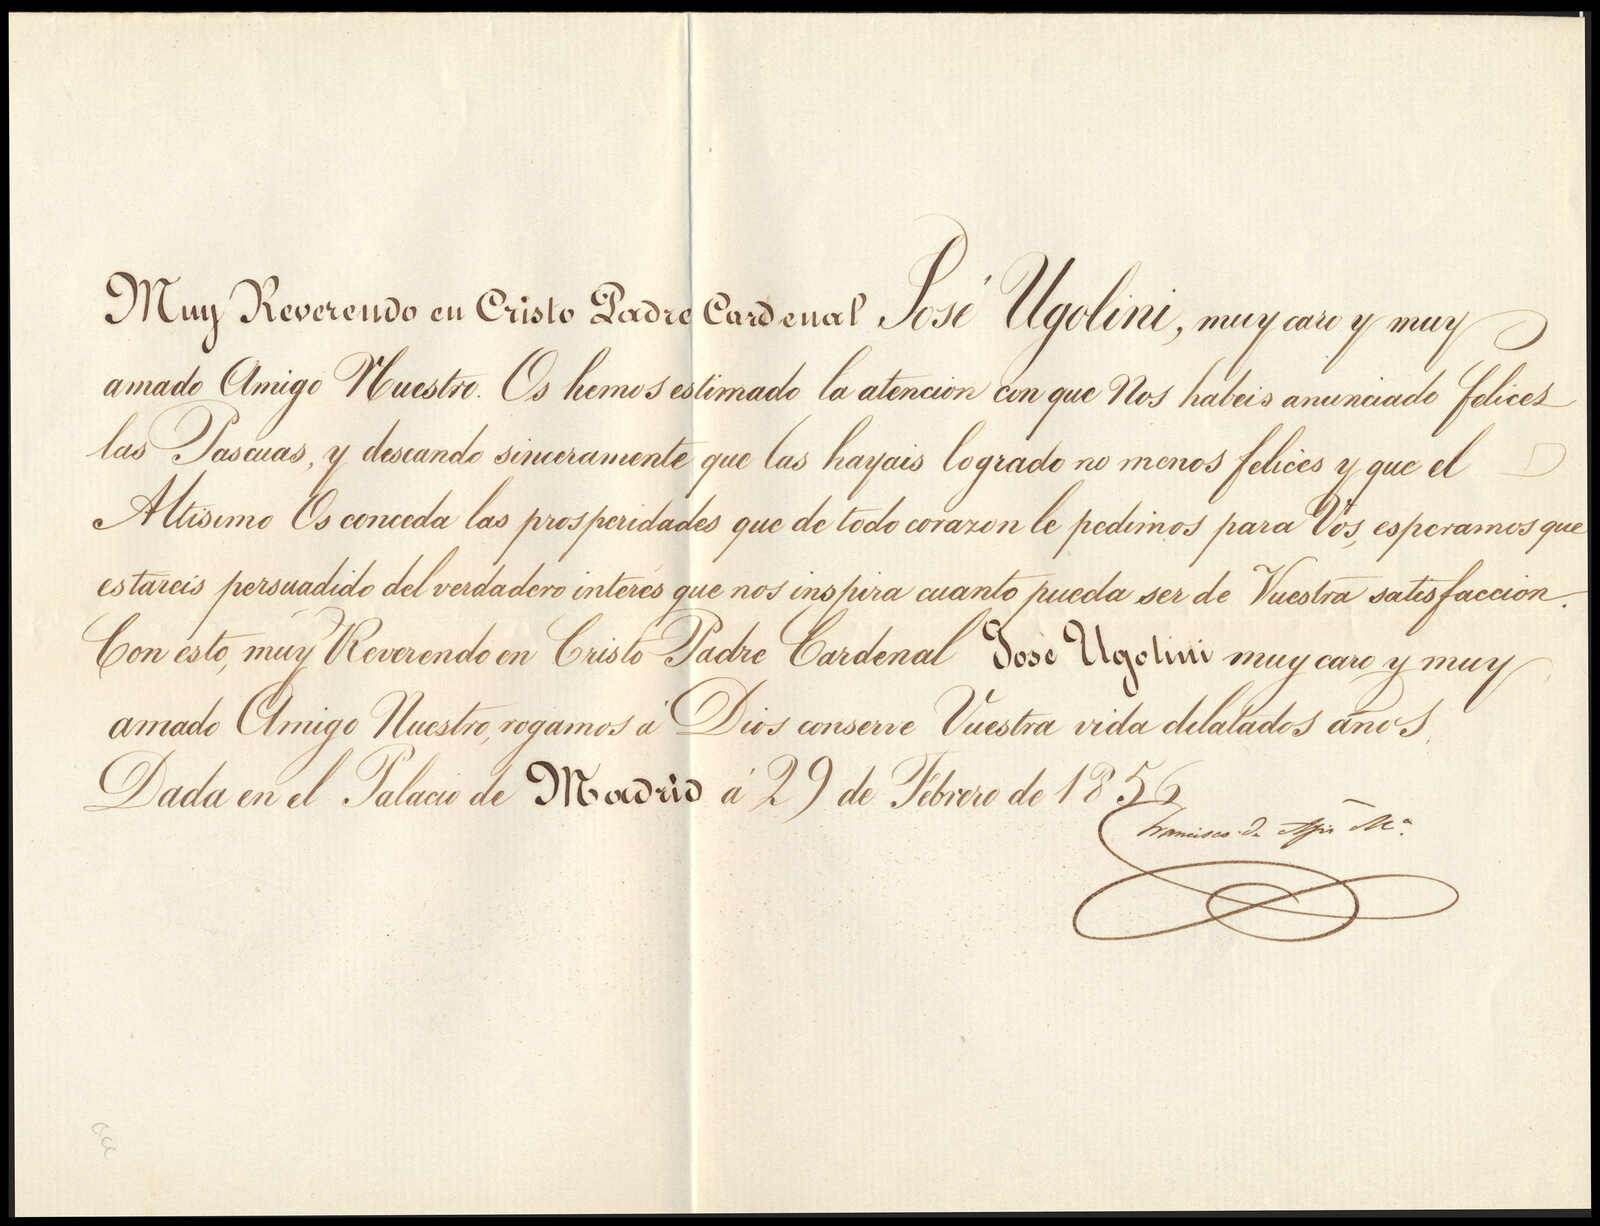 Muy Reverendo en Cristo Padre Cardenal José Ugolini, muy caro y muy
amado Amigo Nuestro. Os hemos estimado la atencion con que Nos habeis anunciado felices
las Pascuas, y deseando sinceramente que las hayais logrado no menos felices y que el
Altisimo Os conceda las prosperidades que de todo corazon le pedimos para Vos, esperamos que
estareis persuadido del verdadero interés que nos inspira cuanto pueda ser de Vuestra satisfaccion.
Con esto, muy Reverendo en Cristo Padre Cardenal José Ugolini muy caro y muy
amado Amigo Nuestro, rogamos á Dios conserve Vuestra vida dilatados años.
Dada en el Palacio de Madrid á 29 de Febrero de 1856
Francisco de Asis Mª